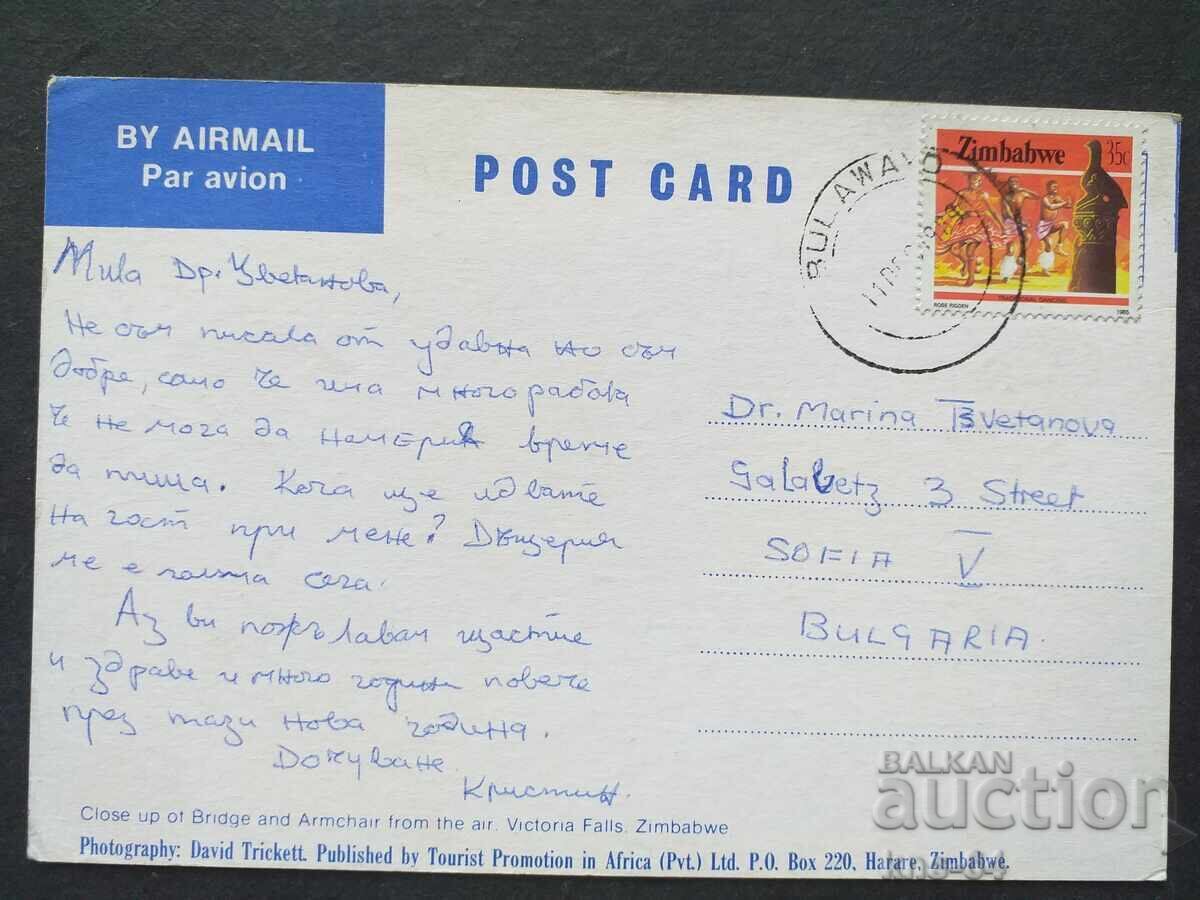 BY AIRMAIL
Par avion
POST CARD
BULAWAYO
Zimbabwe 35c
TRADITIONAL DANCING
ROSE RIGDEN 1985
Мила Др. Цветанова,
Не съм писала от удавна но съм
добре, само че има много работа
Че не мога да намеря време
да пиша. Кога ще идвате
на гост при мене? Дъщерия
ме е голяма сега.
Аз ви пожълавам щастие
и здраве и много години повече
през тази нова година.
Дочуване
Кристин.
Dr. Marina Tsvetanova
Galabetz 3 Street
SOFIA V
BULGARIA.
Close up of Bridge and Armchair from the air. Victoria Falls, Zimbabwe
Photography: David Trickett. Published by Tourist Promotion in Africa (Pvt.) Ltd. P.O. Box 220, Harare, Zimbabwe.
BALKAN
auction